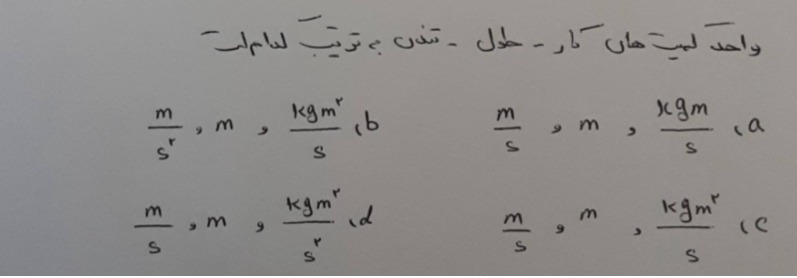 واحد کمیت های کار - طول - تندی به ترتیب کدام است
a) kgm/s , m , m/s    b) kgm²/s , m , m/s²
c) kgm²/s , m , m/s    d) kgm²/s² , m , m/s